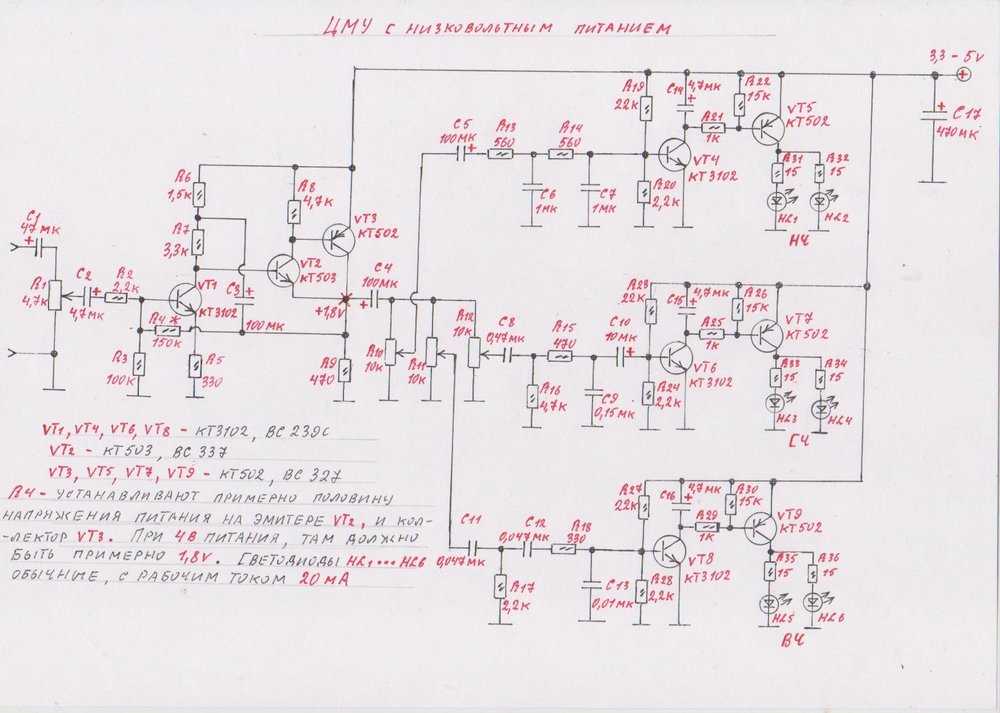 ЦМУ С НИЗКОВОЛЬТНЫМ ПИТАНИЕМ
3,3 - 5V
+
R19
22К
C14
4,7МК
+
R22
15К
VT5
КТ502
R21
1К
C17
470МК
+
C5
100МК
+
R13
560
R14
560
VT4
КТ3102
R31
15
R32
15
C6
1МК
C7
1МК
R20
2,2К
HL1
HL2
НЧ
R6
1,5К
R8
4,7К
R7
3,3К
VT3
КТ502
C1
47МК
+
VT2
КТ503
C4
100МК
+
R1
4,7К
C2
4,7МК
+
R2
2,2К
VT1
КТ3102
C3
+
100МК
+1,8V
R4*
150К
R3
100К
R5
330
R9
470
R10
10К
R11
10К
R12
10К
C8
0,47МК
R15
470
C10
10МК
+
R23
22К
C15
4,7МК
+
R26
15К
VT7
КТ502
R25
1К
VT6
КТ3102
R16
4,7К
C9
0,15МК
R24
2,2К
R33
15
R34
15
HL3
HL4
СЧ
VT1, VT4, VT6, VT8 - КТ3102, ВС 239С
VT2 - КТ503, ВС 337
VT3, VT5, VT7, VT9 - КТ502, ВС 327
R4 - УСТАНАВЛИВАЮТ ПРИМЕРНО ПОЛОВИНУ
НАПРЯЖЕНИЯ ПИТАНИЯ НА ЭМИТЕРЕ VT2, И КОЛ-
-ЛЕКТОР VT3. ПРИ 4В ПИТАНИЯ, ТАМ ДОЛЖНО
БЫТЬ ПРИМЕРНО 1,8V. СВЕТОДИОДЫ HL1...HL6
ОБЫЧНИЕ, С РАБОЧИМ ТОКОМ 20МА
C11
0,047МК
C12
0,047МК
R18
330
R27
22К
C16
4,7МК
+
R30
15К
VT9
КТ502
R29
1К
VT8
КТ3102
R17
2,2К
C13
0,01МК
R28
2,2К
R35
15
R36
15
HL5
HL6
ВЧ